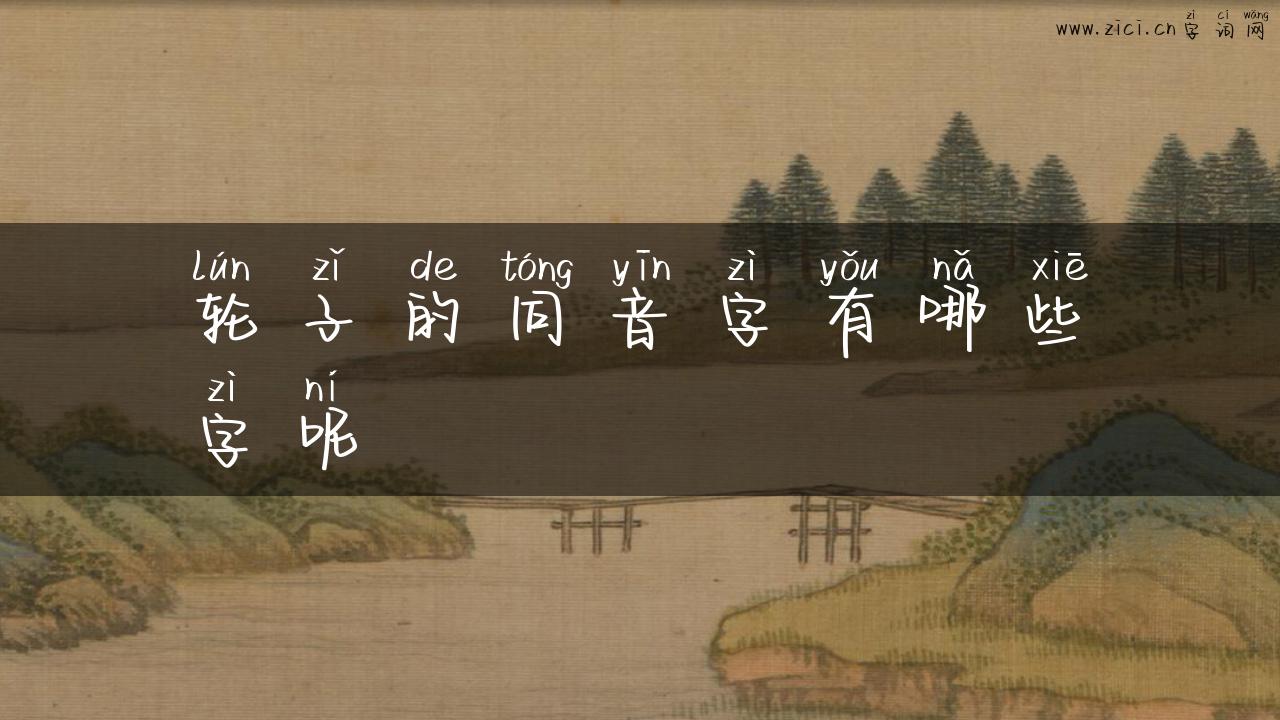 zì cí wǎng
www.zici.cn 字 词 网
lún zǐ de tóng yīn zì yǒu nǎ xiē
轮 子 的 同 音 字 有 哪 些
zì ní
字 呢